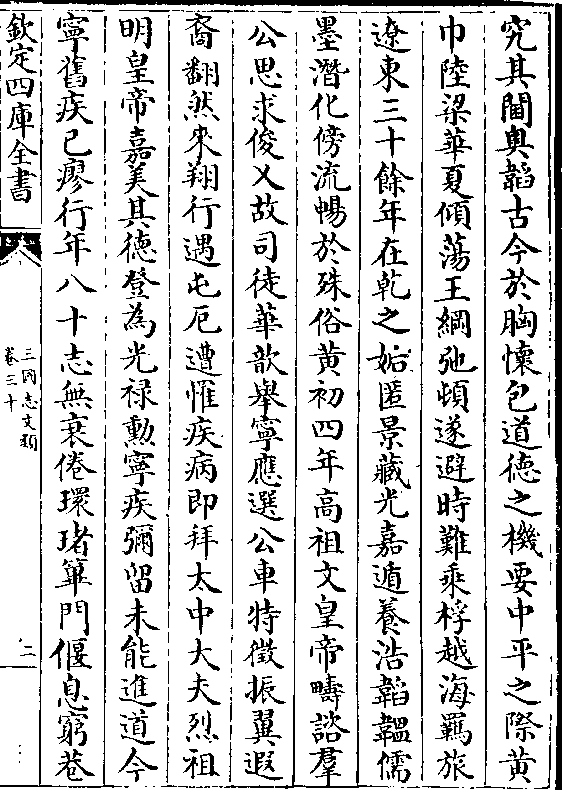 究其閫奥韜古今於胸懷包道德之機要中平之際黄
巾陸梁華夏傾蕩王綱弛頓遂避時難乘桴越海羈旅
遼東三十餘年在乾之姤匿景藏光嘉遁養浩韜韞儒
墨潛化傍流暢於殊俗黄初四年高祖文皇帝疇諮羣
公思求俊乂故司徒華歆舉寧應選公車特徵振翼遐
裔翻然來翔行遇屯厄遭惟疾病即拜太中大夫烈祖
明皇帝嘉美其德登為光禄勲寧疾彌留未能進道今
寧舊疾已瘳行年八十志無衰倦環堵篳門偃息窮巷
欽定四庫全書
三國志文類
卷三十
二